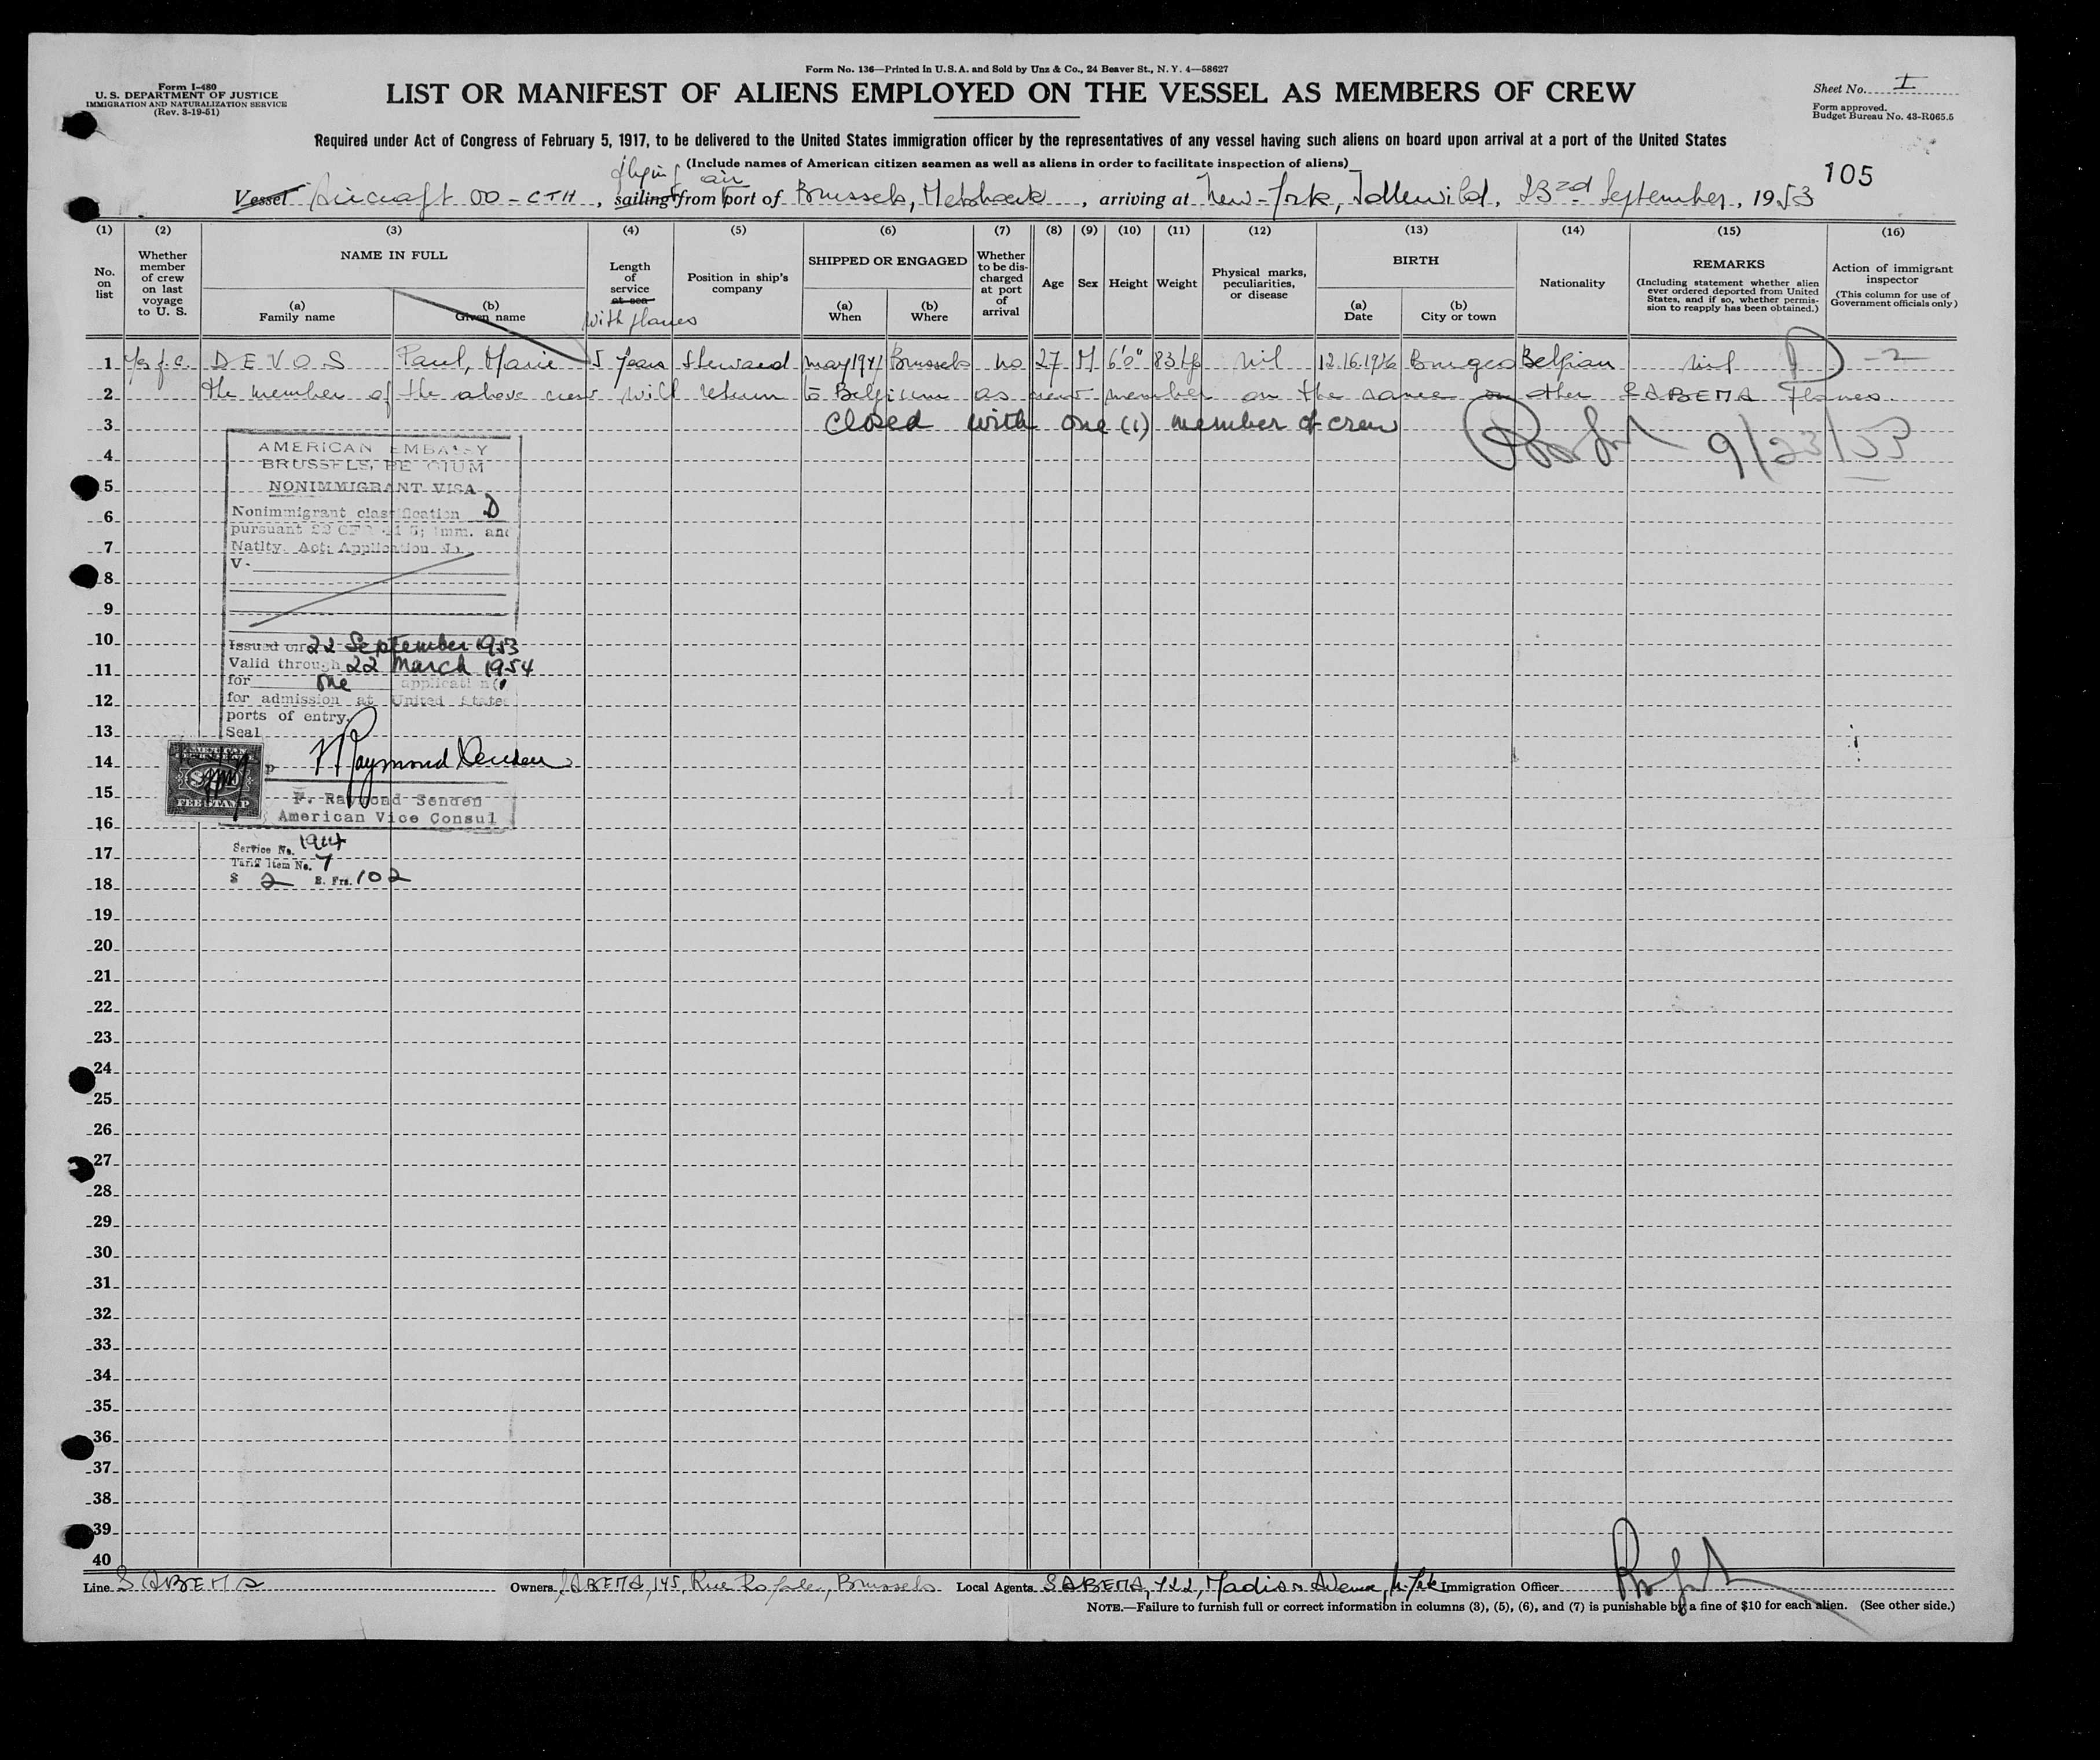 Form No. 136—Printed in U.S.A. and Sold by Unz & Co., 24 Beaver St., N. Y. 4—58627
Form I-480
U. S. DEPARTMENT OF JUSTICE
IMMIGRATION AND NATURALIZATION SERVICE
(Rev. 3-19-51)
LIST OR MANIFEST OF ALIENS EMPLOYED ON THE VESSEL AS MEMBERS OF CREW
Sheet No. I
Form approved.
Budget Bureau No. 43-R065.5
Required under Act of Congress of February 5, 1917, to be delivered to the United States immigration officer by the representatives of any vessel having such aliens on board upon arrival at a port of the United States
(Include names of American citizen seamen as well as aliens in order to facilitate inspection of aliens)
105
flying air
Vessel Aircraft OO-CTH, sailing from port of Brussels, Melsbroek, arriving at New-York, Idlewild, 23rd September, 1953
(1) (2) (3) (4) (5) (6) (7) (8) (9) (10) (11) (12) (13) (14) (15) (16)
No. on list
Whether member of crew on last voyage to U. S.
NAME IN FULL
(a) Family name
(b) Given name
Length of service at sea
with planes
Position in ship's company
SHIPPED OR ENGAGED
(a) When
(b) Where
Whether to be discharged at port of arrival
Age
Sex
Height
Weight
Physical marks, peculiarities, or disease
BIRTH
(a) Date
(b) City or town
Nationality
REMARKS
(Including statement whether alien ever ordered deported from United States, and if so, whether permission to reapply has been obtained.)
Action of immigrant inspector
(This column for use of Government officials only)
1 DEVOS Paul, Marie 5 years Steward may Brussels no 27 M 6'0" 83 nil 12.16.1926 Bruges Belgian nil D -2
2 the member of the above crew will return to Belgium as crew member on the same or other SABENA planes.
3 Closed with one (1) member of crew
9/23/53
4
5
6
7
8
9
10
11
12
13
14
15
16
17
18
19
20
21
22
23
24
25
26
27
28
29
30
31
32
33
34
35
36
37
38
39
40
AMERICAN EMBASSY
BRUSSELS, BELGIUM
NONIMMIGRANT VISA
Nonimmigrant classification D
pursuant 22 CFR 41.5; Imm. and
Natlty. Act; Application No.
V-
Issued on 22 September 1953
Valid through 22 March 1954
for one application
for admission at United States
ports of entry.
Seal
FEE STAMP
F. Raymond Senden
F. Raymond Senden
American Vice Consul
Service No. 1914
Tariff Item No. 7
$ 2 B. Frs. 102
Line SABENA Owners SABENA, 145, Rue Royale, Brussels Local Agents SABENA, 422, Madison Avenue, N. York Immigration Officer
NOTE.—Failure to furnish full or correct information in columns (3), (5), (6), and (7) is punishable by a fine of $10 for each alien. (See other side.)